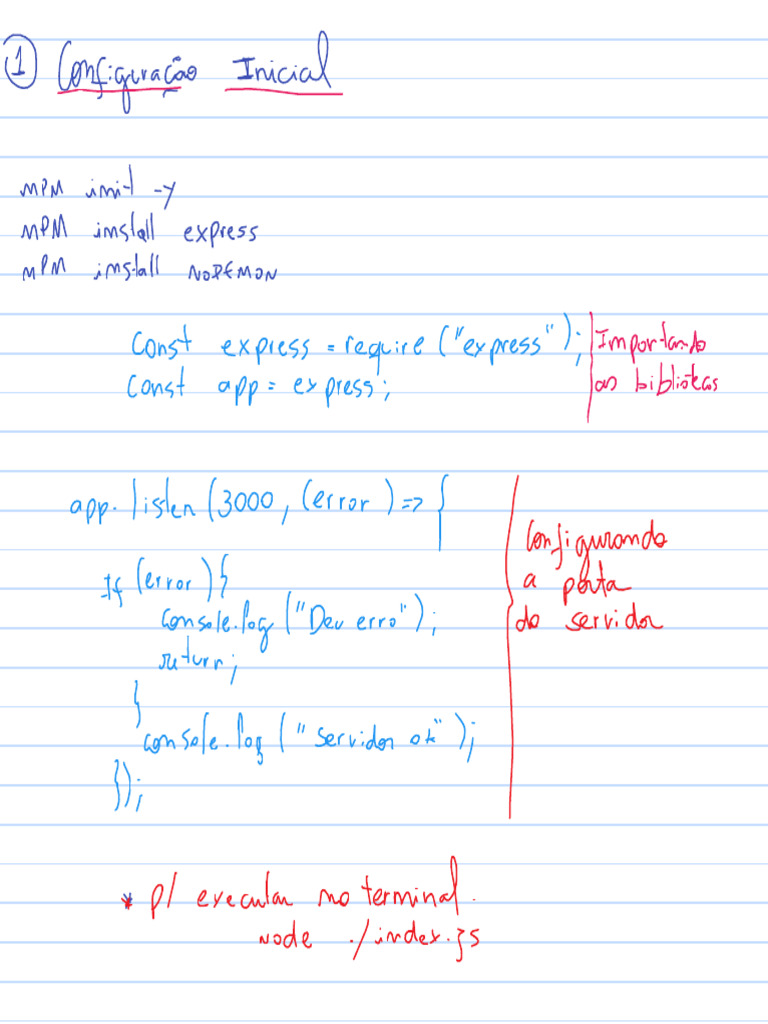 ① Configuração Inicial
npm init -y
npm install express
npm install NODEMON
const express = require ("express");
const app = express;
Importando
as bibliotecas
app. listen (3000, (error) => {
If (error) {
console.log ("Deu erro");
return;
}
console.log ("servidor ok");
});
Configurando
a porta
do servidor
* p/ executar no terminal.
NODE ./index.js